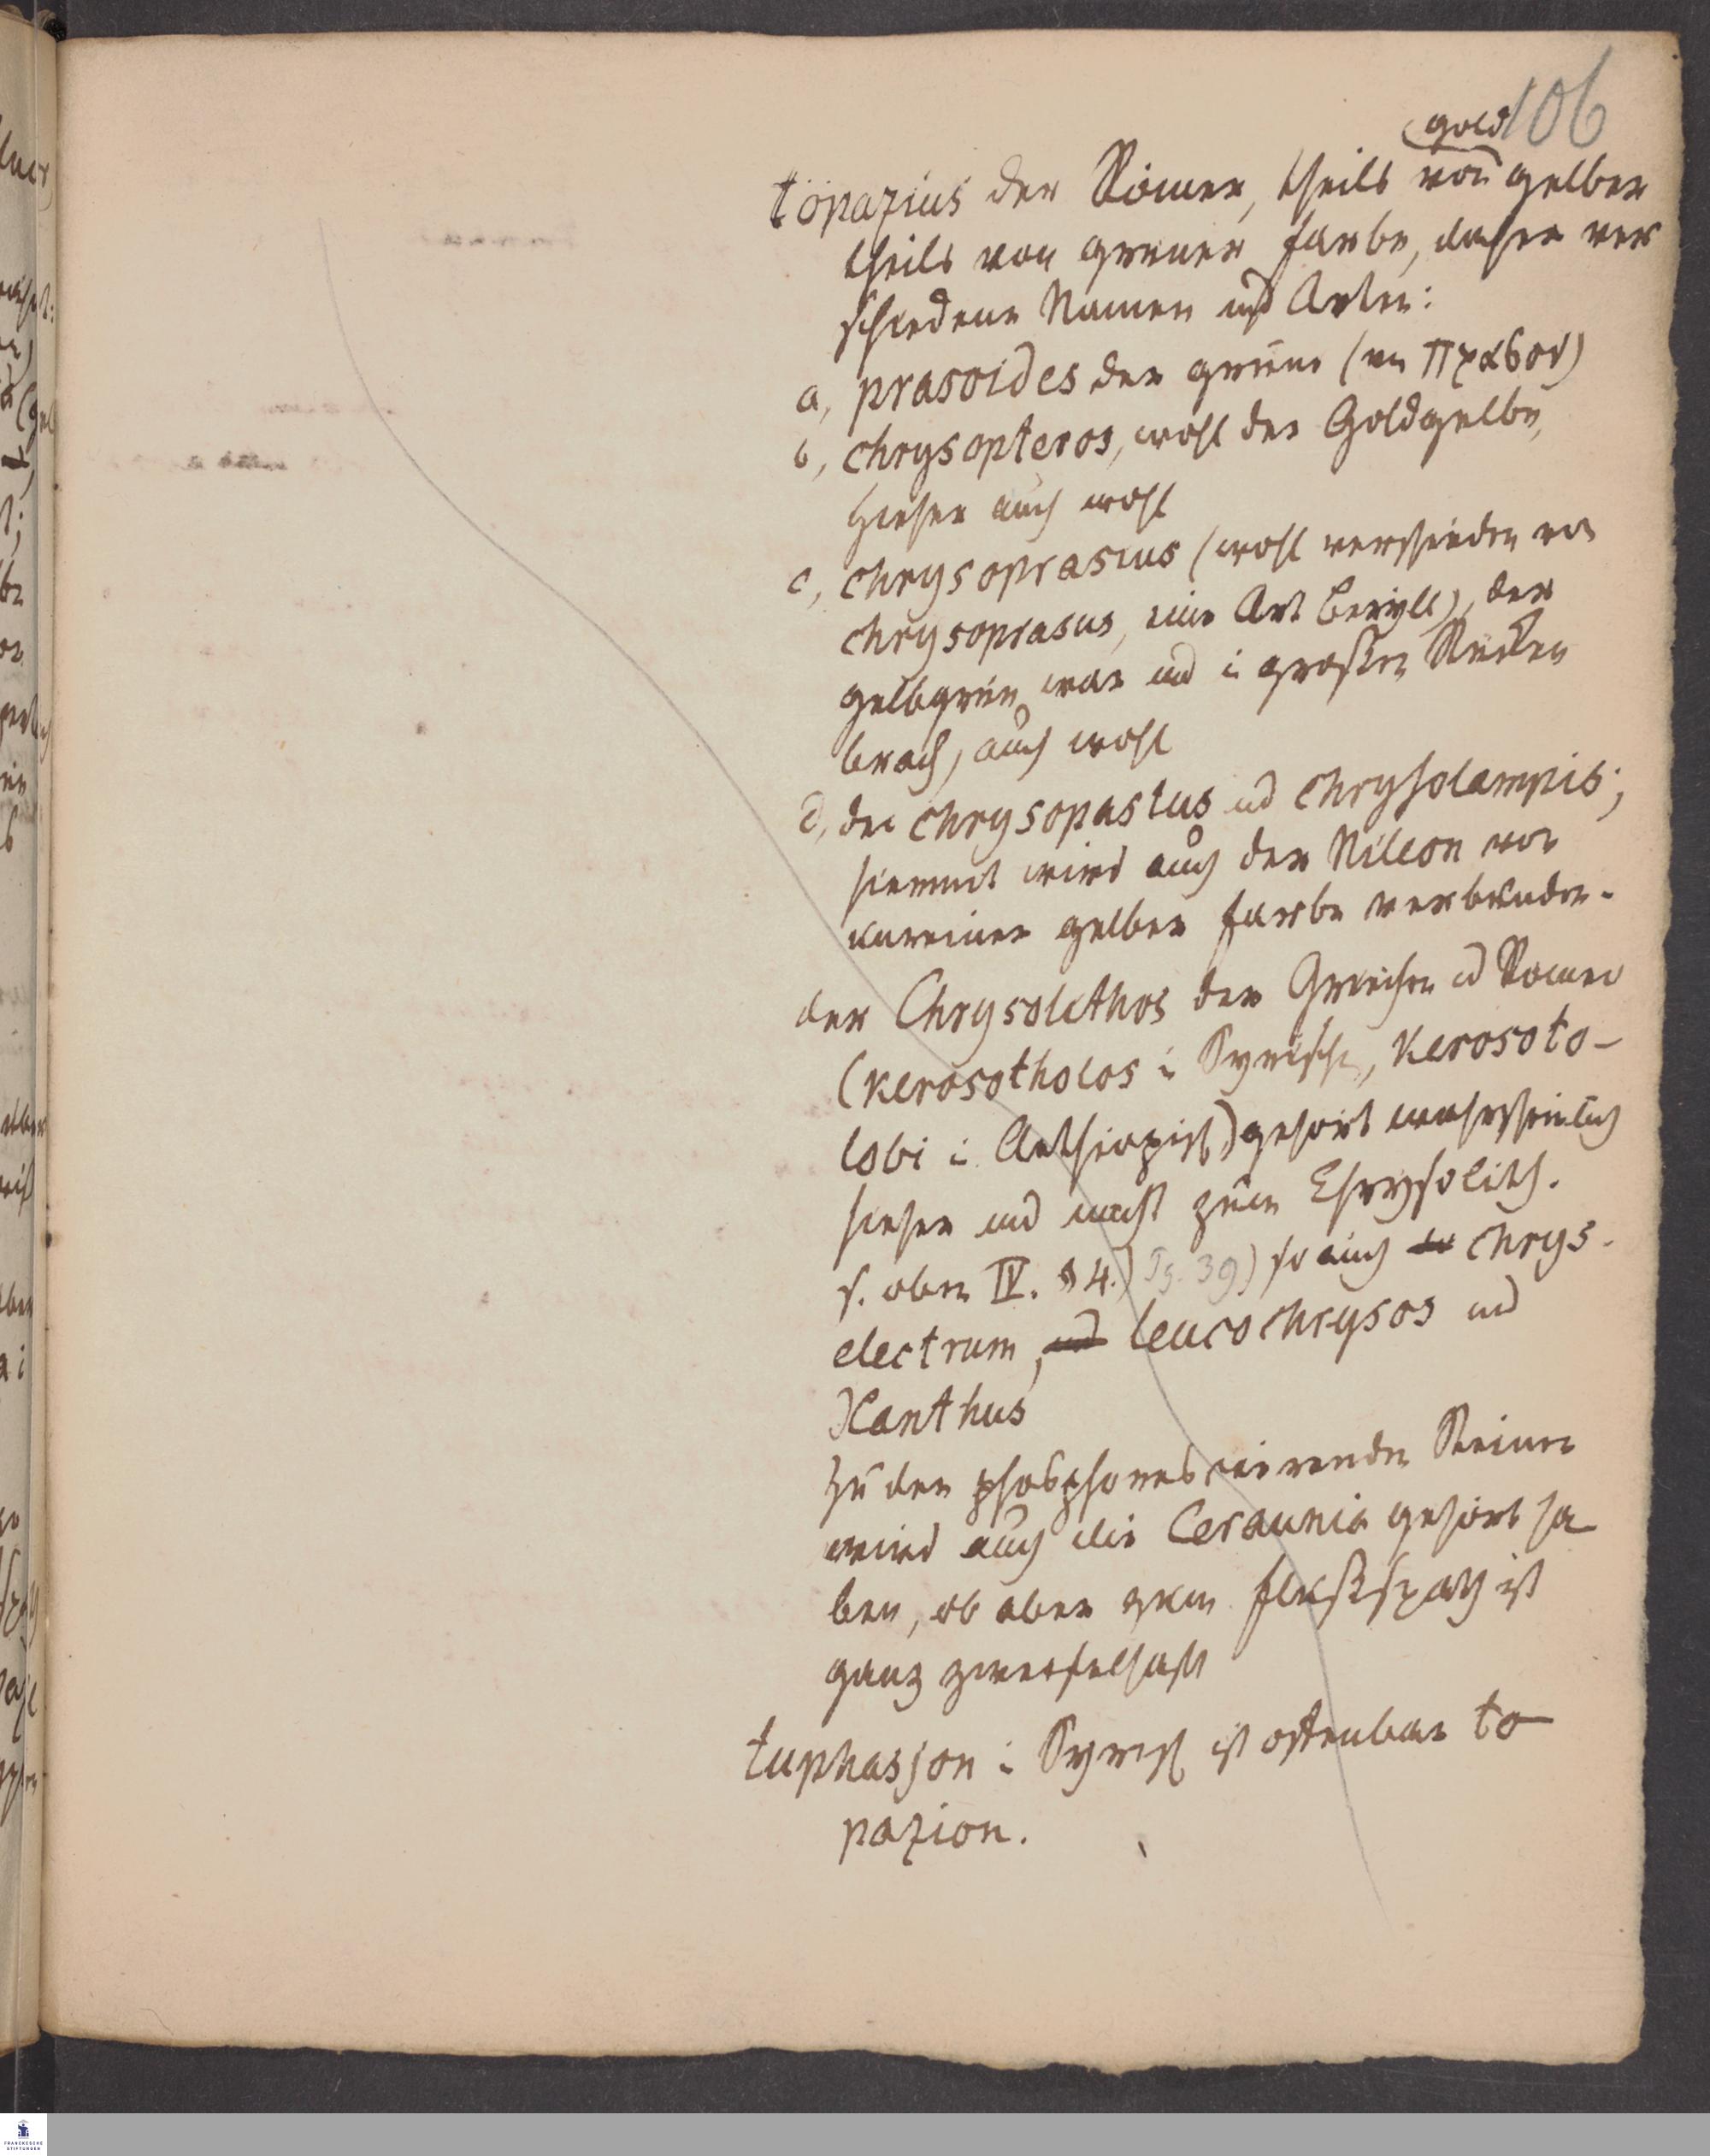 106
gold
topazius der Römer, theils von gelber
theils von gruner Farbe, daher ver
schiedene Namen und Arten:
a, prasoides der grüne (von πρασον)
b, chrysopteros, wohl der Goldgelbe,
hieher auch wohl
c, chrysoprasius (wohl verschieden von
chrysoprasus, eine Art Beryll), der
gelbgrün war und in großen Stücken
brach, auch wohl
d, der chrysopastus und chrysolampis;
hiermit wird auch der Nileon von
unreiner gelber Farbe verbunden.
der Chrysolithos der Griechen und Römer
(kerosotholos in Syrisch, kerosoto-
lobi in Aethiopisch) gehört wahrscheinlich
hieher und nicht zum Chrysolith.
s. oben IV. § 4.) Pg. 39) so auch chrys-
electrum, und leucochrysos und
Xanthus
Zu den phosphorescirenden Steinen
wird auch die Ceraunia gehört ha
ben, ob aber zum Flußspath ist
ganz zweifelhaft
tuphasjon in Syrisch ist offenbar to
pazion.
FRANCKESCHE
STIFTUNGEN